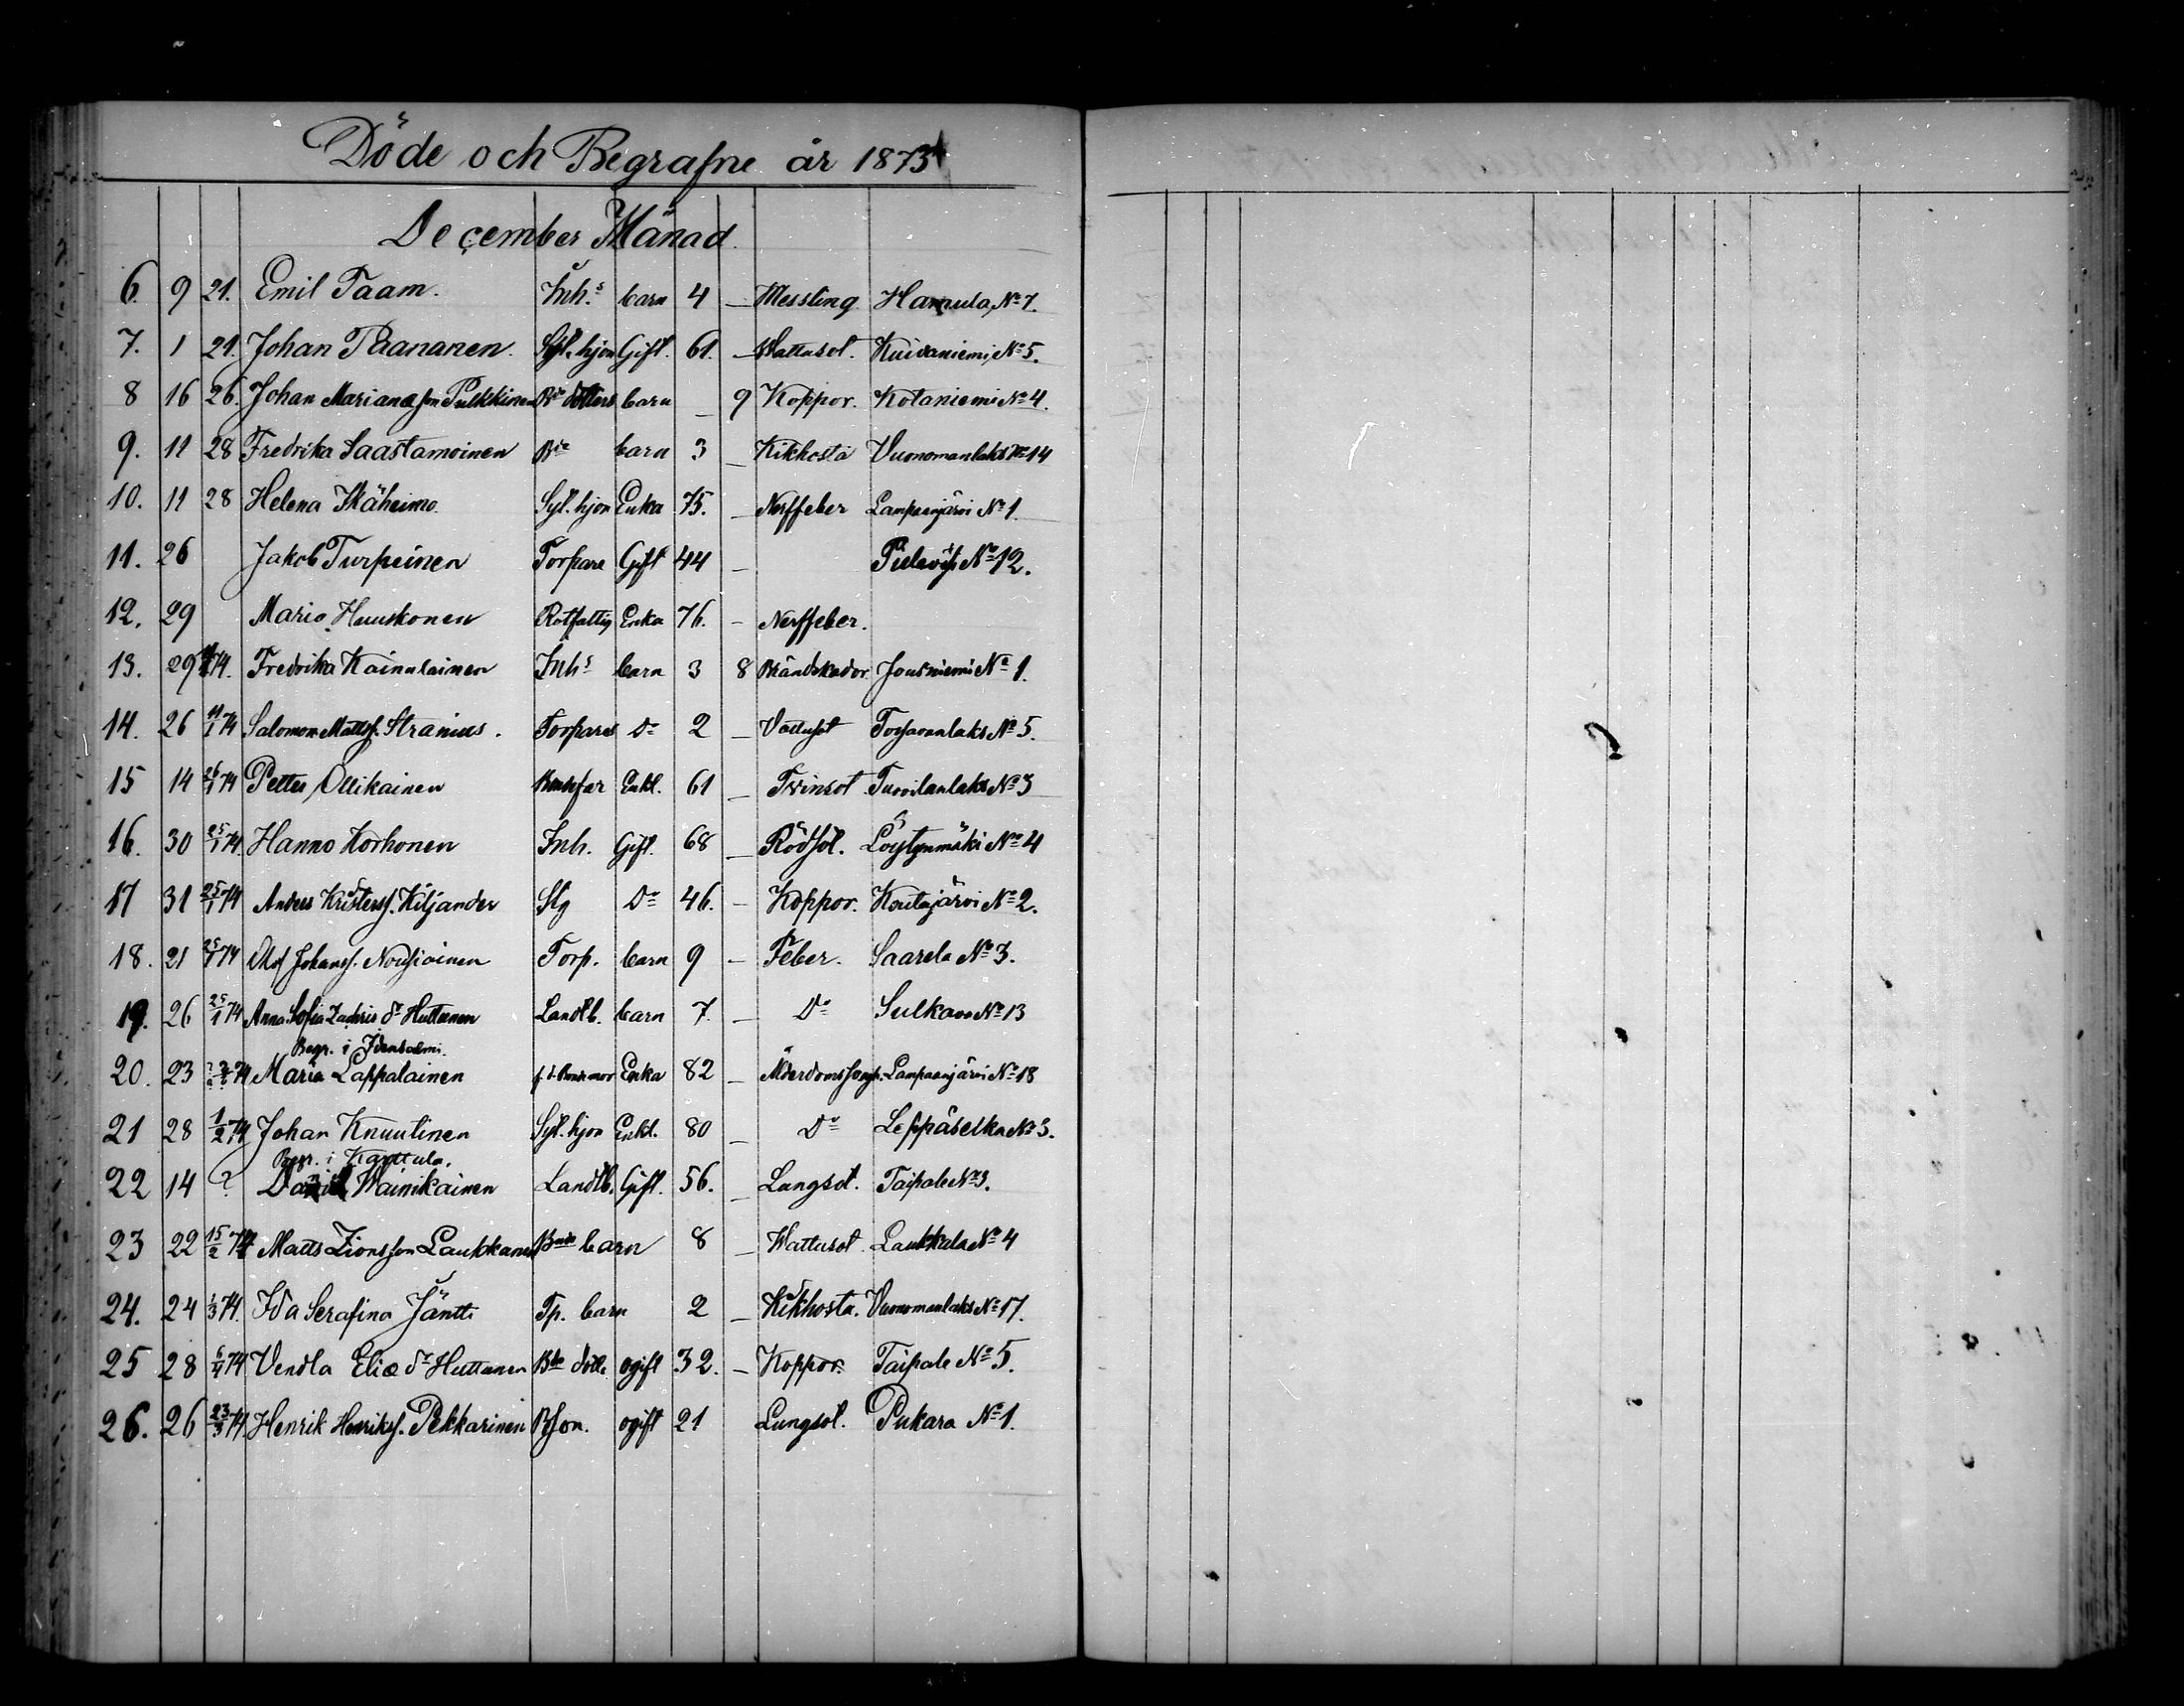 Döde och Begrafne år 1873
December Månad.
6. 9 21. Emil Taam. Inh.s barn 4 — Messling Hamula, No 7.
7. 1 21. Johan Paananen. Syt. hjon Gift. 61. — Wattusot. Kuivaniemi, No 5.
8 16 26. Johan Marianæson Pulkkinen Bde dotters barn — 9 Koppor. Kotaniemi No 4.
9. 11 28 Fredrika Saastamoinen Bde barn 3 — Kikhosta Vuonomanlaks No 14
10. 11 28 Helena Skäheimo Syt. hjon Enka 75. — Nerffeber Lampaanjärvi No 1.
11. 26 Jakob Turpeinen Torpare Gift 44 — No 12.
12. 29 Maria Huuskonen Rotfattig Enka 76. — Nerffeber.
13. 29 74. Fredrika Kainulainen Inhs barn 3 8 Brändskador. Jousniemi No 1.
14. 26 11/1 74 Salomon Mattss. Stranius. Torpares Do 2 — Vattusot No 5.
15 14 26/1 74 Petter Ollikainen Bondefar Enkl. 61 — Tvinsot Tuovilanlaks No 3
16. 30 25/1 74. Hanno Korhonen Inh. Gift. 68 — Rödsot. Löytynmäki No 4
17 31 25/1 74 Anders Kristerss. Kiljander Stg Do 46. — Koppor. Koutajärvi No 2.
18. 21 25/1 74 Olof Johanss. Nousiainen Torp. barn 9 — Feber. Saarela No 3.
19. 26 25/1 74 Anna Sofia Zachris dr Huttunen Landtb. barn 7. — Do Sulkava No 13
Begr. i Idensalmi.
20. 23 74 Maria Lappalainen f.d. Bondemor Enka 82 — Lampaanjärvi No 18
21 28 1/2 74 Johan Knuutinen Syt. hjon Enkl. 80 — Do Leppäselkä No 3.
Begr. i Karttula.
22 14 ? Daniel Wainikainen Landtb. Gift. 56. — Lungsot. Taipale No 3.
23 22 15/2 74 Matts Zionsson Laukkanen Bnde barn 8 — Wattusot. Laukkala No 4
24. 24 1/3 74. Ida Serafina Jäntti Tp. barn 2 — Kikhosta. Vuonomanlaks No 17.
25 28 6/4 74 Vendla Eliæ dr Huttunen Bde dotte ogift 32. — Koppor. Taipale No 5.
26. 26 23/3 74. Henrik Henrikss. Pekkarinen Bson. ogift 21 Lungsot. Pukara No 1.